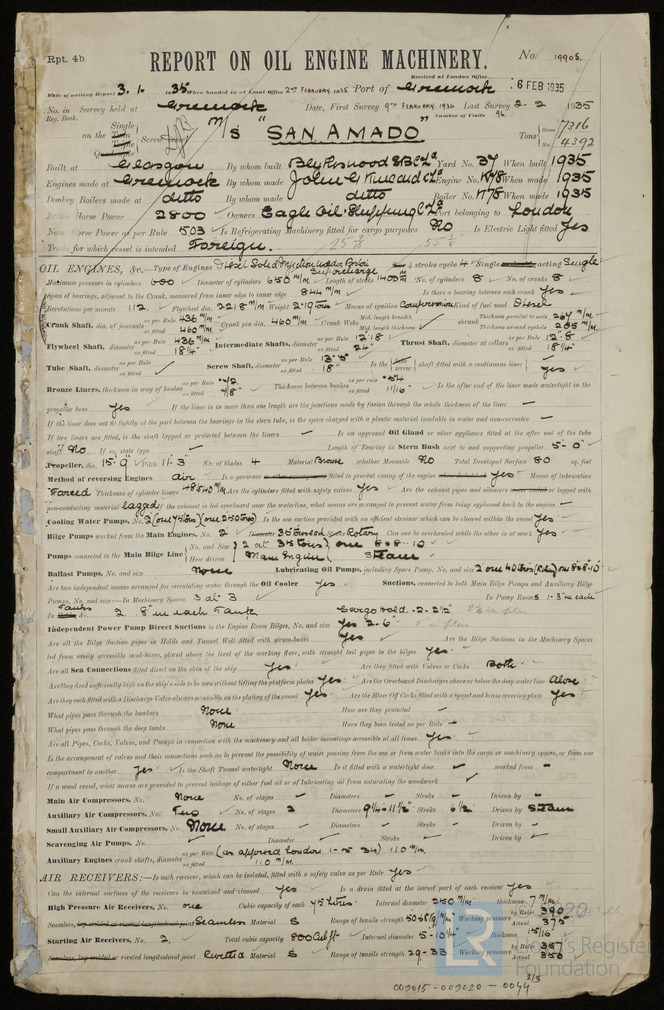 Rpt. 4b
REPORT ON OIL ENGINE MACHINERY.
No. 19905
Received at London Office 6 FEB 1935
Date of writing Report 3. 1. 1935 When handed in at Local Office 2nd FEBRUARY 1935 Port of Greenock
No. in Survey held at Greenock Date, First Survey 9TH FEBRUARY 1934 Last Survey 2. 2 1935
Reg. Book. Number of Visits 96
on the Single Screw M/S "SAN AMADO" Tons Gross 7316 Net 4392
Built at Glasgow By whom built Blythswood S B Co Ld Yard No. 37 When built 1935
Engines made at Greenock By whom made John G Kincaid & Co Ld Engine No. K78 When made 1935
Donkey Boilers made at ditto By whom made ditto Boiler No. K78 When made 1935
Brake Horse Power 2800 Owners Eagle Oil Shipping Co Ld Port belonging to London
Nom. Horse Power as per Rule 503 Is Refrigerating Machinery fitted for cargo purposes No Is Electric Light fitted Yes
Trade for which vessel is intended Foreign.
OIL ENGINES, &c.—Type of Engines Diesel Solid Injection Under Piston Supercharge 4 stroke cycle 4 Single acting Single
Maximum pressure in cylinders 600 Diameter of cylinders 650 m/m Length of stroke 1400 m/m No. of cylinders 8 No. of cranks 8
Span of bearings, adjacent to the Crank, measured from inner edge to inner edge 844 m/m Is there a bearing between each crank Yes
Revolutions per minute 112 Flywheel dia. 2218 m/m Weight 2.19 tons Means of ignition Compression Kind of fuel used Diesel
Crank Shaft, dia. of journals as per Rule 436 m/m as fitted 460 m/m Crank pin dia. 460 m/m Crank Webs Mid. length breadth Mid. length thickness shrunk Thickness parallel to axis 267 m/m Thickness around eyehole 205 m/m
Flywheel Shaft, diameter as per Rule 436 m/m as fitted 18 1/4" Intermediate Shafts, diameter as per Rule 12.18 as fitted 24" Thrust Shaft, diameter at collars as per Rule 12.8 as fitted 18 1/4"
Tube Shaft, diameter as per Rule as fitted Screw Shaft, diameter as per Rule as fitted 18" Is the screw shaft fitted with a continuous liner Yes
Bronze Liners, thickness in way of bushes as per Rule as fitted 7/8" Thickness between bushes as per rule as fitted 11/16" Is the after end of the liner made watertight in the
propeller boss Yes If the liner is in more than one length are the junctions made by fusion through the whole thickness of the liner —
If the liner does not fit tightly at the part between the bearings in the stern tube, is the space charged with a plastic material insoluble in water and non-corrosive —
If two liners are fitted, is the shaft lapped or protected between the liners — Is an approved Oil Gland or other appliance fitted at the after end of the tube
shaft No If so, state type — Length of Bearing in Stern Bush next to and supporting propeller 5'-0"
Propeller, dia. 15'-9" Pitch 11'-3" No. of blades 4 Material Bronze whether Moveable No Total Developed Surface 80 sq. feet
Method of reversing Engines air Is a governor fitted to prevent racing of the engine Yes Means of lubrication
Forced Thickness of cylinder liners 48 & 40 m/m Are the cylinders fitted with safety valves Yes Are the exhaust pipes and silencers lagged with
non-conducting material Lagged If the exhaust is led overboard near the waterline, what means are arranged to prevent water from being syphoned back to the engine —
Cooling Water Pumps, No. 2 Is the sea suction provided with an efficient strainer which can be cleared within the vessel Yes
Bilge Pumps worked from the Main Engines, No. 2 Diameter 35 tons Stroke Rotary Can one be overhauled while the other is at work Yes
Pumps connected to the Main Bilge Line No. and Size 2 at 35 tons one 8 x 8 - 10 How driven Main Engine Steam
Ballast Pumps, No. and size None Lubricating Oil Pumps, including Spare Pump, No. and size
Are two independent means arranged for circulating water through the Oil Cooler Yes Suctions, connected to both Main Bilge Pumps and Auxiliary Bilge
Pumps, No. and size:—In Machinery Spaces 3 at 3 In Pump Room
In Tanks &c. 2. 8" in each Tank Cargo hold. - 2 - 2 1/2"
Independent Power Pump Direct Suctions to the Engine Room Bilges, No. and size Yes 2 - 6"
Are all the Bilge Suction pipes in Holds and Tunnel Well fitted with strum-boxes Yes Are the Bilge Suctions in the Machinery Spaces
led from easily accessible mud-boxes, placed above the level of the working floor, with straight tail pipes to the bilges Yes
Are all Sea Connections fitted direct on the skin of the ship Yes Are they fitted with Valves or Cocks Both
Are they fixed sufficiently high on the ship's side to be seen without lifting the platform plates Yes Are the Overboard Discharges above or below the deep water line Above
Are they each fitted with a Discharge Valve always accessible on the plating of the vessel Yes Are the Blow Off Cocks fitted with a spigot and brass covering plate Yes
What pipes pass through the bunkers None How are they protected —
What pipes pass through the deep tanks None Have they been tested as per Rule —
Are all Pipes, Cocks, Valves, and Pumps in connection with the machinery and all boiler mountings accessible at all times Yes
Is the arrangement of valves and their connections such as to prevent the possibility of water passing from the sea or from water tanks into the cargo or machinery spaces, or from one
compartment to another Yes Is the Shaft Tunnel watertight None Is it fitted with a watertight door — worked from —
If a wood vessel, what means are provided to prevent leakage of either fuel oil or of lubricating oil from saturating the woodwork
Main Air Compressors, No. None No. of stages — Diameters — Stroke — Driven by —
Auxiliary Air Compressors, No. Two No. of stages 2 Diameters 9 1/4 - 11 1/2" Stroke 6 1/2 Driven by Steam
Small Auxiliary Air Compressors, No. None No. of stages Diameters Stroke Driven by
Scavenging Air Pumps, No. Diameter Stroke Driven by
Auxiliary Engines crank shafts, diameter as per Rule (as approved London 1-5-34) 110 m/m. as fitted 110 m/m.
AIR RECEIVERS:—Is each receiver, which can be isolated, fitted with a safety valve as per Rule Yes
Can the internal surfaces of the receivers be examined and cleaned Yes Is a drain fitted at the lowest part of each receiver Yes
High Pressure Air Receivers, No. one Cubic capacity of each 45 litres Internal diameter 250 m/m thickness 7 m/m.
Seamless Material S Range of tensile strength Working pressure by Rules 390 Actual 375
Starting Air Receivers, No. 2. Total cubic capacity 800 Cub ft Internal diameter 5-10 1/4" thickness 15/16"
riveted longitudinal joint Riveted Material S Range of tensile strength 29-33 Working pressure by Rules 357 Actual 356
LR
Lloyd's Register
Foundation
002015-002020-0044 2/3